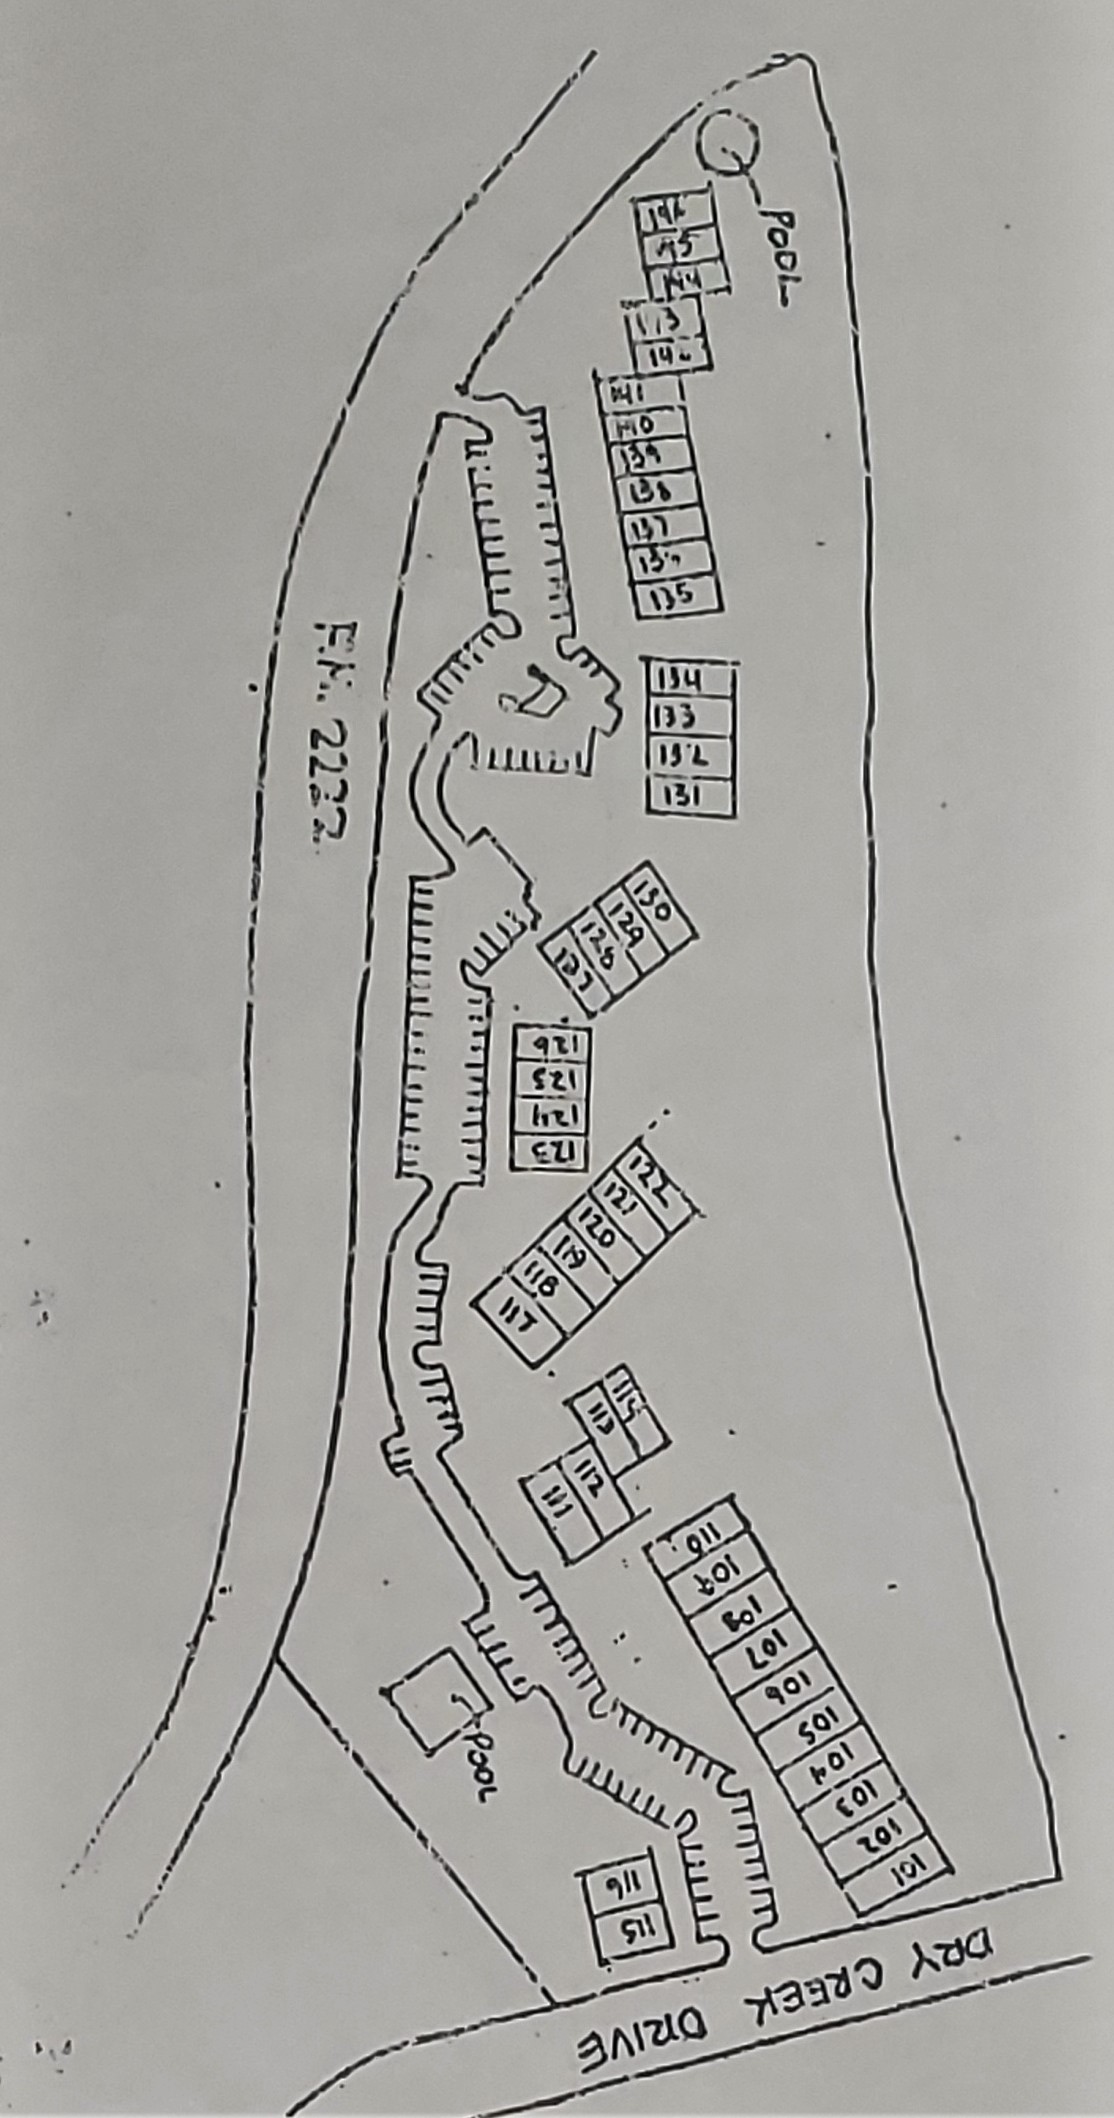 POOL
146
145
144
143
142
141
140
139
138
137
136
135
134
133
132
131
F.M. 2222
130
129
128
127
126
125
124
123
122
121
120
119
118
117
114
113
112
111
110
109
108
107
106
105
104
103
102
101
POOL
116
115
DRY CREEK DRIVE